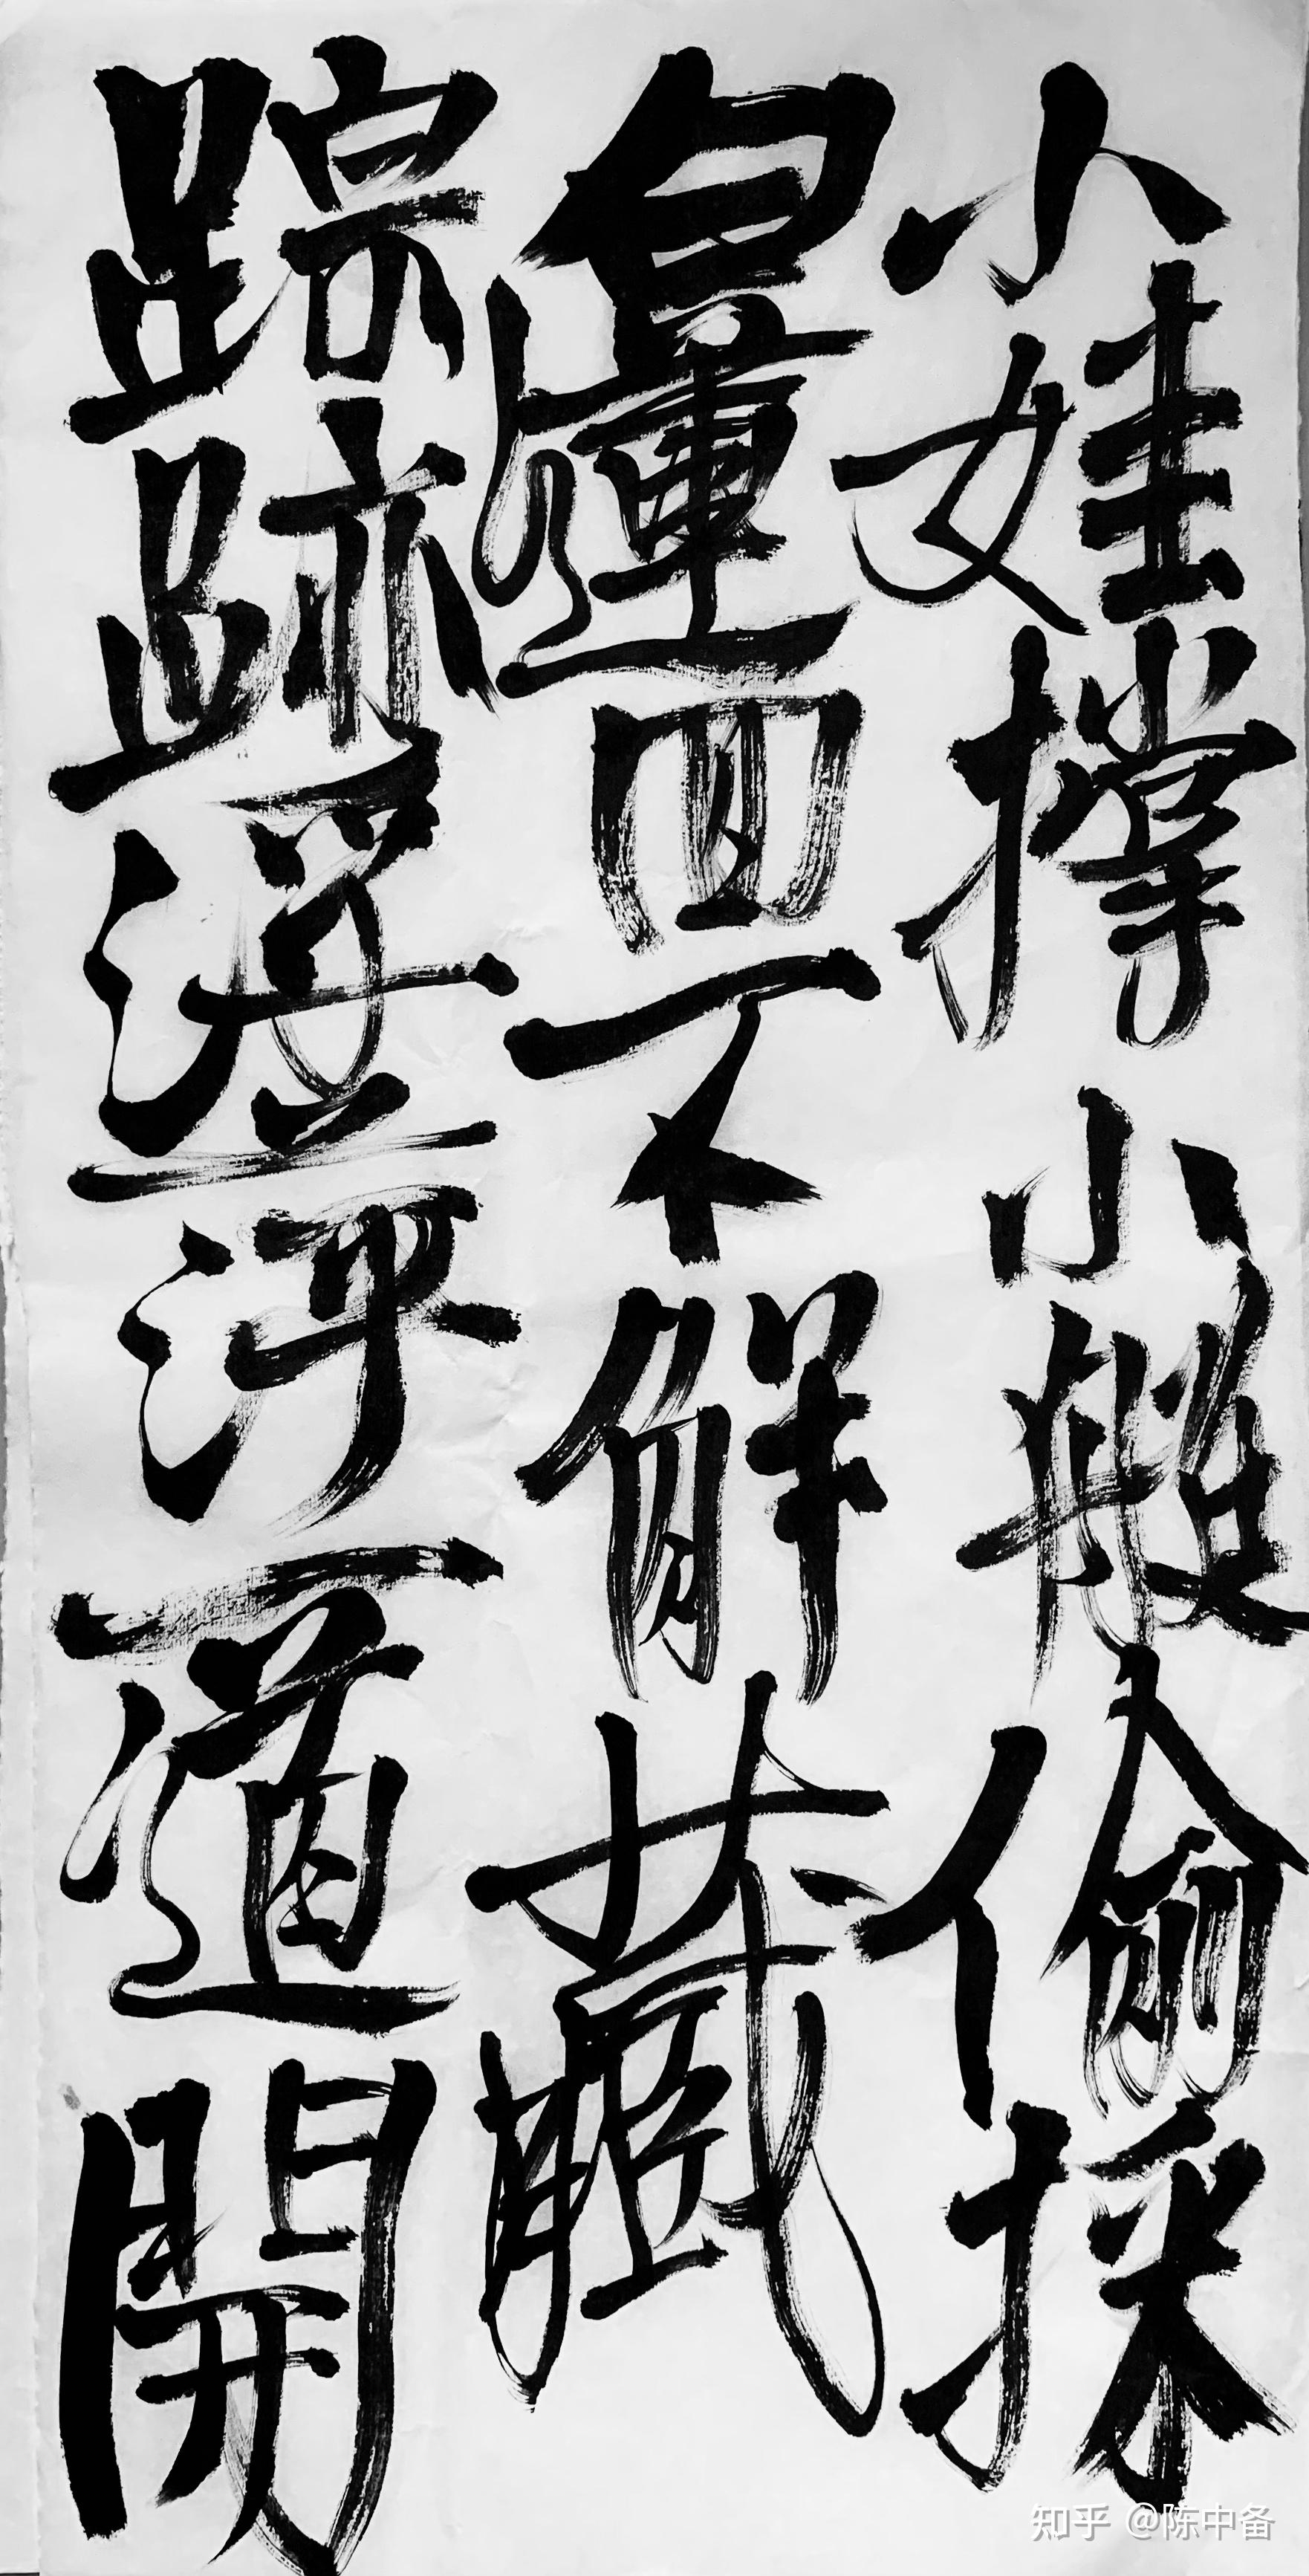 小娃撑小艇偷採
白蓮回不解藏
踪跡浮萍一道開
知乎 @陈中备